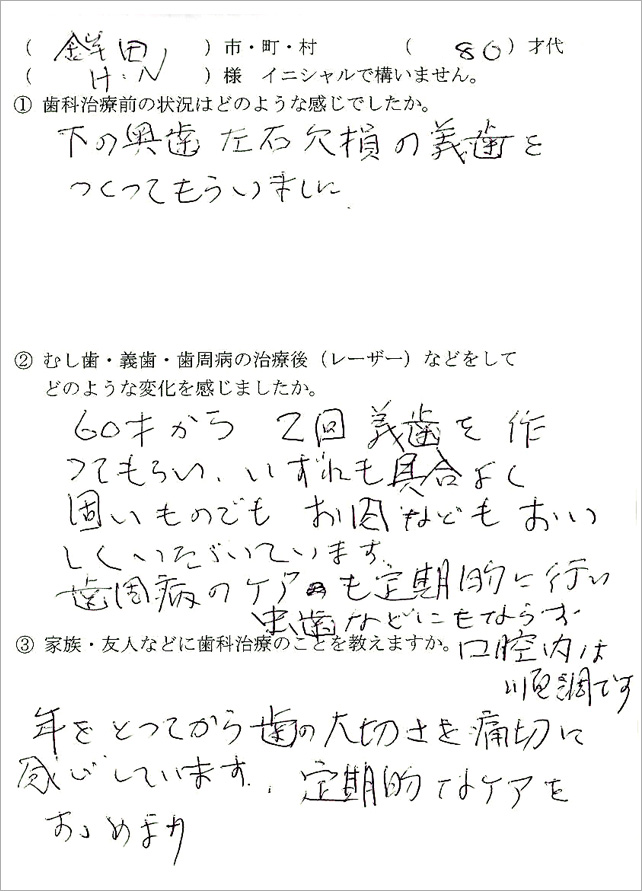 ( 鉾田 ) 市・町・村 ( 80 ) 才代
( H.N ) 様 イニシャルで構いません。
① 歯科治療前の状況はどのような感じでしたか。
下の奥歯 左右欠損の義歯を
つくってもらいました
② むし歯・義歯・歯周病の治療後（レーザー）などをして
どのような変化を感じましたか。
60才から 2回 義歯を 作
ってもらい、いずれも具合よく
固いものでも お肉などもおい
しくいただいています。
歯周病のケアも定期的に行い
虫歯などにもならず
③ 家族・友人などに歯科治療のことを教えますか。
口腔内は
順調です
年をとってから歯の大切さを痛切に
感じています。定期的なケアを
おすすめます